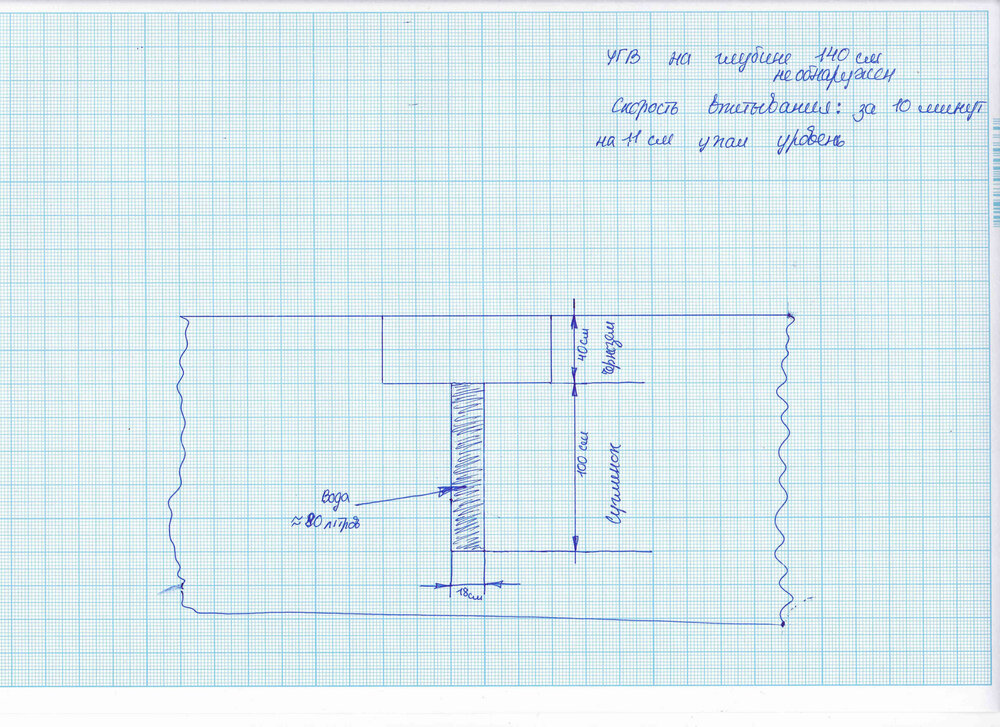 УГВ на глубине 140 см
не обнаружен
Скорость впитывания: за 10 минут
на 11 см упал уровень
40см
чернозем
100 см
Суглинок
Вода
≈ 80 літров
18см